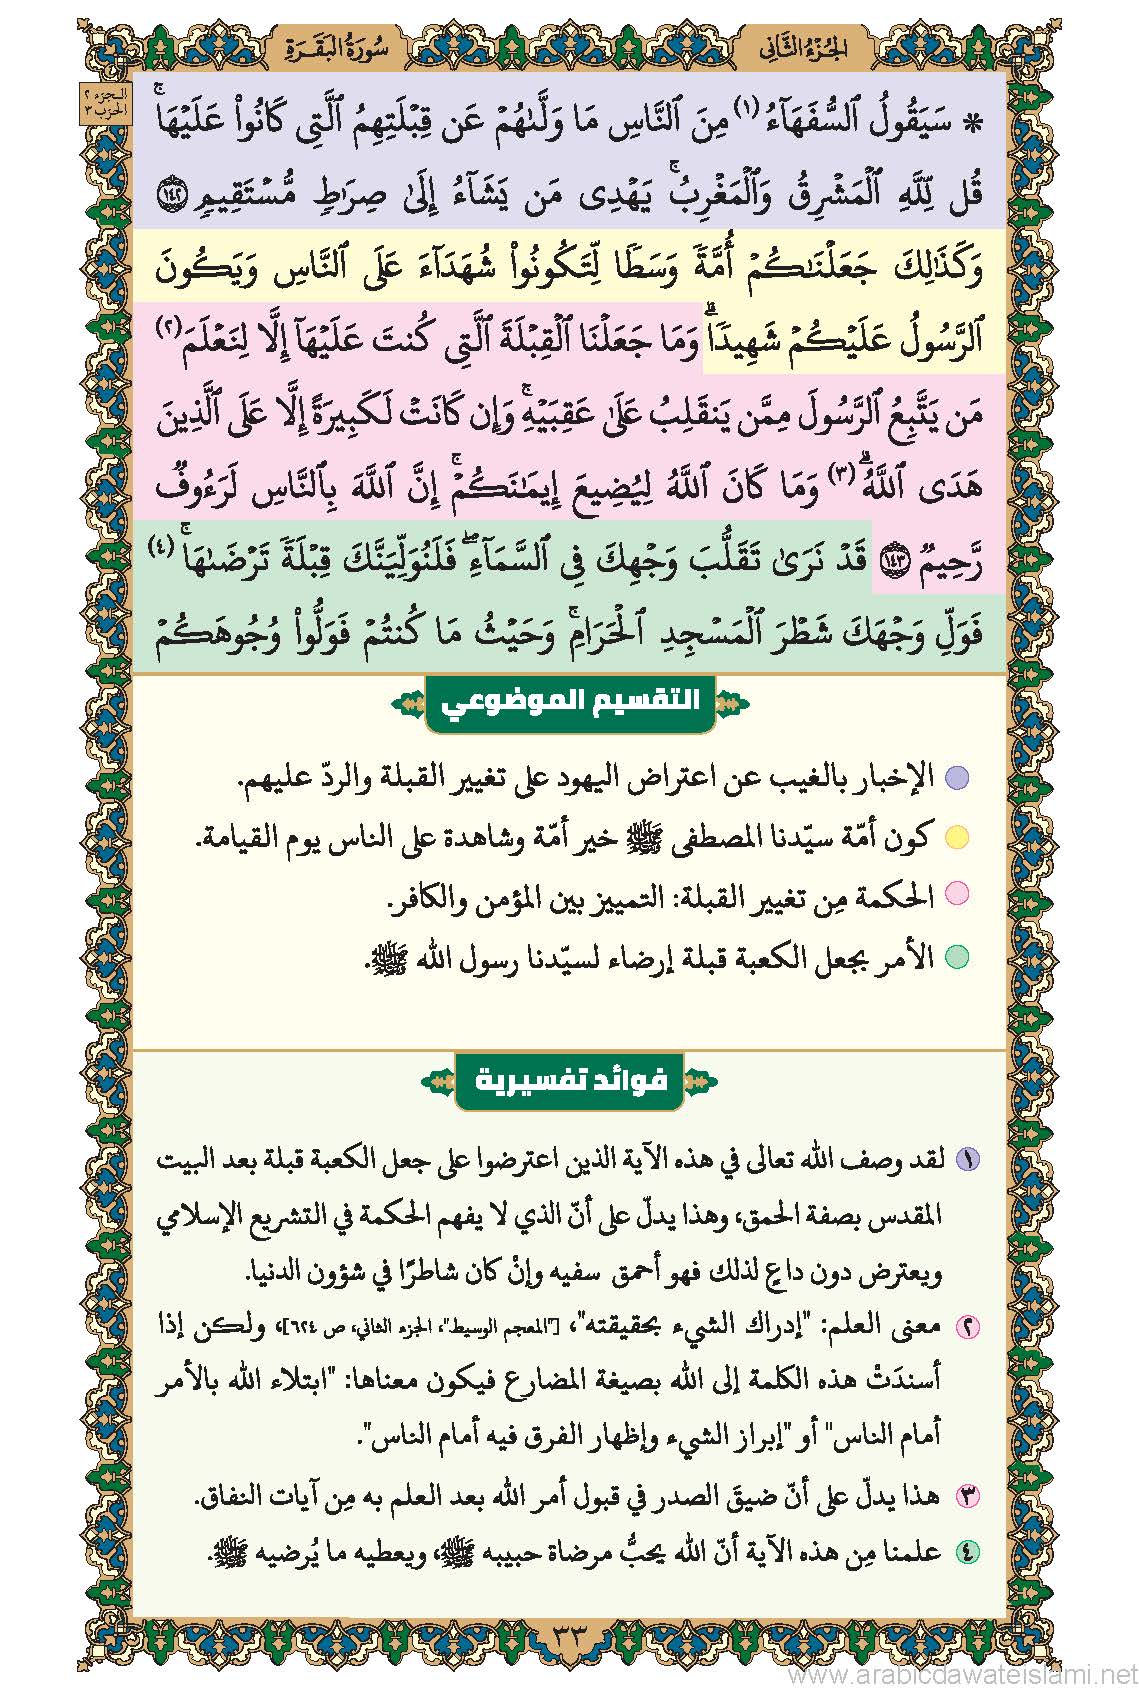 الجُزْءُ الثَّانِي
سُورَةُ البَقَرَةِ
الجزء ٢
الحزب ٣
* سَيَقُولُ ٱلسُّفَهَآءُ (١) مِنَ ٱلنَّاسِ مَا وَلَّىٰهُمْ عَن قِبْلَتِهِمُ ٱلَّتِى كَانُوا۟ عَلَيْهَا ۚ
قُل لِّلَّهِ ٱلْمَشْرِقُ وَٱلْمَغْرِبُ ۚ يَهْدِى مَن يَشَآءُ إِلَىٰ صِرَٰطٍ مُّسْتَقِيمٍ ١٤٢
وَكَذَٰلِكَ جَعَلْنَٰكُمْ أُمَّةً وَسَطًا لِّتَكُونُوا۟ شُهَدَآءَ عَلَى ٱلنَّاسِ وَيَكُونَ
ٱلرَّسُولُ عَلَيْكُمْ شَهِيدًا ۗ وَمَا جَعَلْنَا ٱلْقِبْلَةَ ٱلَّتِى كُنتَ عَلَيْهَآ إِلَّا لِنَعْلَمَ (٢)
مَن يَتَّبِعُ ٱلرَّسُولَ مِمَّن يَنقَلِبُ عَلَىٰ عَقِبَيْهِ ۚ وَإِن كَانَتْ لَكَبِيرَةً إِلَّا عَلَى ٱلَّذِينَ
هَدَى ٱللَّهُ ۗ (٣) وَمَا كَانَ ٱللَّهُ لِيُضِيعَ إِيمَٰنَكُمْ ۚ إِنَّ ٱللَّهَ بِٱلنَّاسِ لَرَءُوفٌ
رَّحِيمٌ ١٤٣ قَدْ نَرَىٰ تَقَلُّبَ وَجْهِكَ فِى ٱلسَّمَآءِ ۖ فَلَنُوَلِّيَنَّكَ قِبْلَةً تَرْضَىٰهَا ۚ (٤)
فَوَلِّ وَجْهَكَ شَطْرَ ٱلْمَسْجِدِ ٱلْحَرَامِ ۚ وَحَيْثُ مَا كُنتُمْ فَوَلُّوا۟ وُجُوهَكُمْ
التقسيم الموضوعي
الإخبار بالغيب عن اعتراض اليهود على تغيير القبلة والردّ عليهم.
كون أمّة سيّدنا المصطفى ﷺ خير أمّة وشاهدة على الناس يوم القيامة.
الحكمة مِن تغيير القبلة: التمييز بين المؤمن والكافر.
الأمر بجعل الكعبة قبلة إرضاء لسيّدنا رسول الله ﷺ.
فوائد تفسيرية
١ لقد وصف الله تعالى في هذه الآية الذين اعترضوا على جعل الكعبة قبلة بعد البيت
المقدس بصفة الحمق، وهذا يدلّ على أنّ الذي لا يفهم الحكمة في التشريع الإسلامي
ويعترض دون داعٍ لذلك فهو أحمق سفيه وإنْ كان شاطرًا في شؤون الدنيا.
٢ معنى العلم: "إدراك الشيء بحقيقته"، ["المعجم الوسيط"، الجزء الثاني، ص ٦٢٤]، ولكن إذا
أسندَتْ هذه الكلمة إلى الله بصيغة المضارع فيكون معناها: "ابتلاء الله بالأمر
أمام الناس" أو "إبراز الشيء وإظهار الفرق فيه أمام الناس".
٣ هذا يدلّ على أنّ ضيقَ الصدر في قبول أمر الله بعد العلم به مِن آيات النفاق.
٤ علمنا مِن هذه الآية أنّ الله يحبُّ مرضاة حبيبه ﷺ، ويعطيه ما يُرضيه ﷺ.
٣٣
www.arabicdawateislami.net